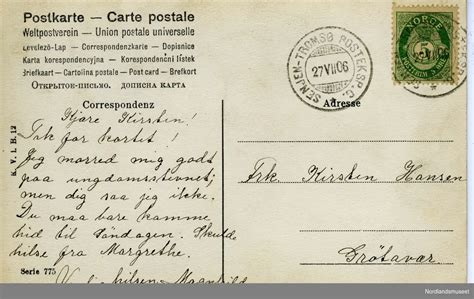 Postkarte — Carte postale
Weltpostverein — Union postale universelle
Levelező-Lap — Correspondenzkarte — Dopisnice
Karta korespondencyjna — Korespondenční lístek
Briefkaart — Cartolina postale — Post card — Brefkort
Открытое-письмо. дописна карта
Correspondenz
Kjære Kirsten!
Tak for kortet!
Jeg morred mig godt
paa ungdomsstevnet;
men dig saa jeg ikke.
Du maa bare komme
hid til Söndagen. Skulde
hilse fra Margrethe.
hilsen
K. V. i. B. 12
Serie 775
SENJEN-TROMSØ POSTEKSP.
27 VII 06
NORGE
5
VII 06
Adresse
Frk Kirsten Hansen
Grötavær.
Nordlandsmuseet